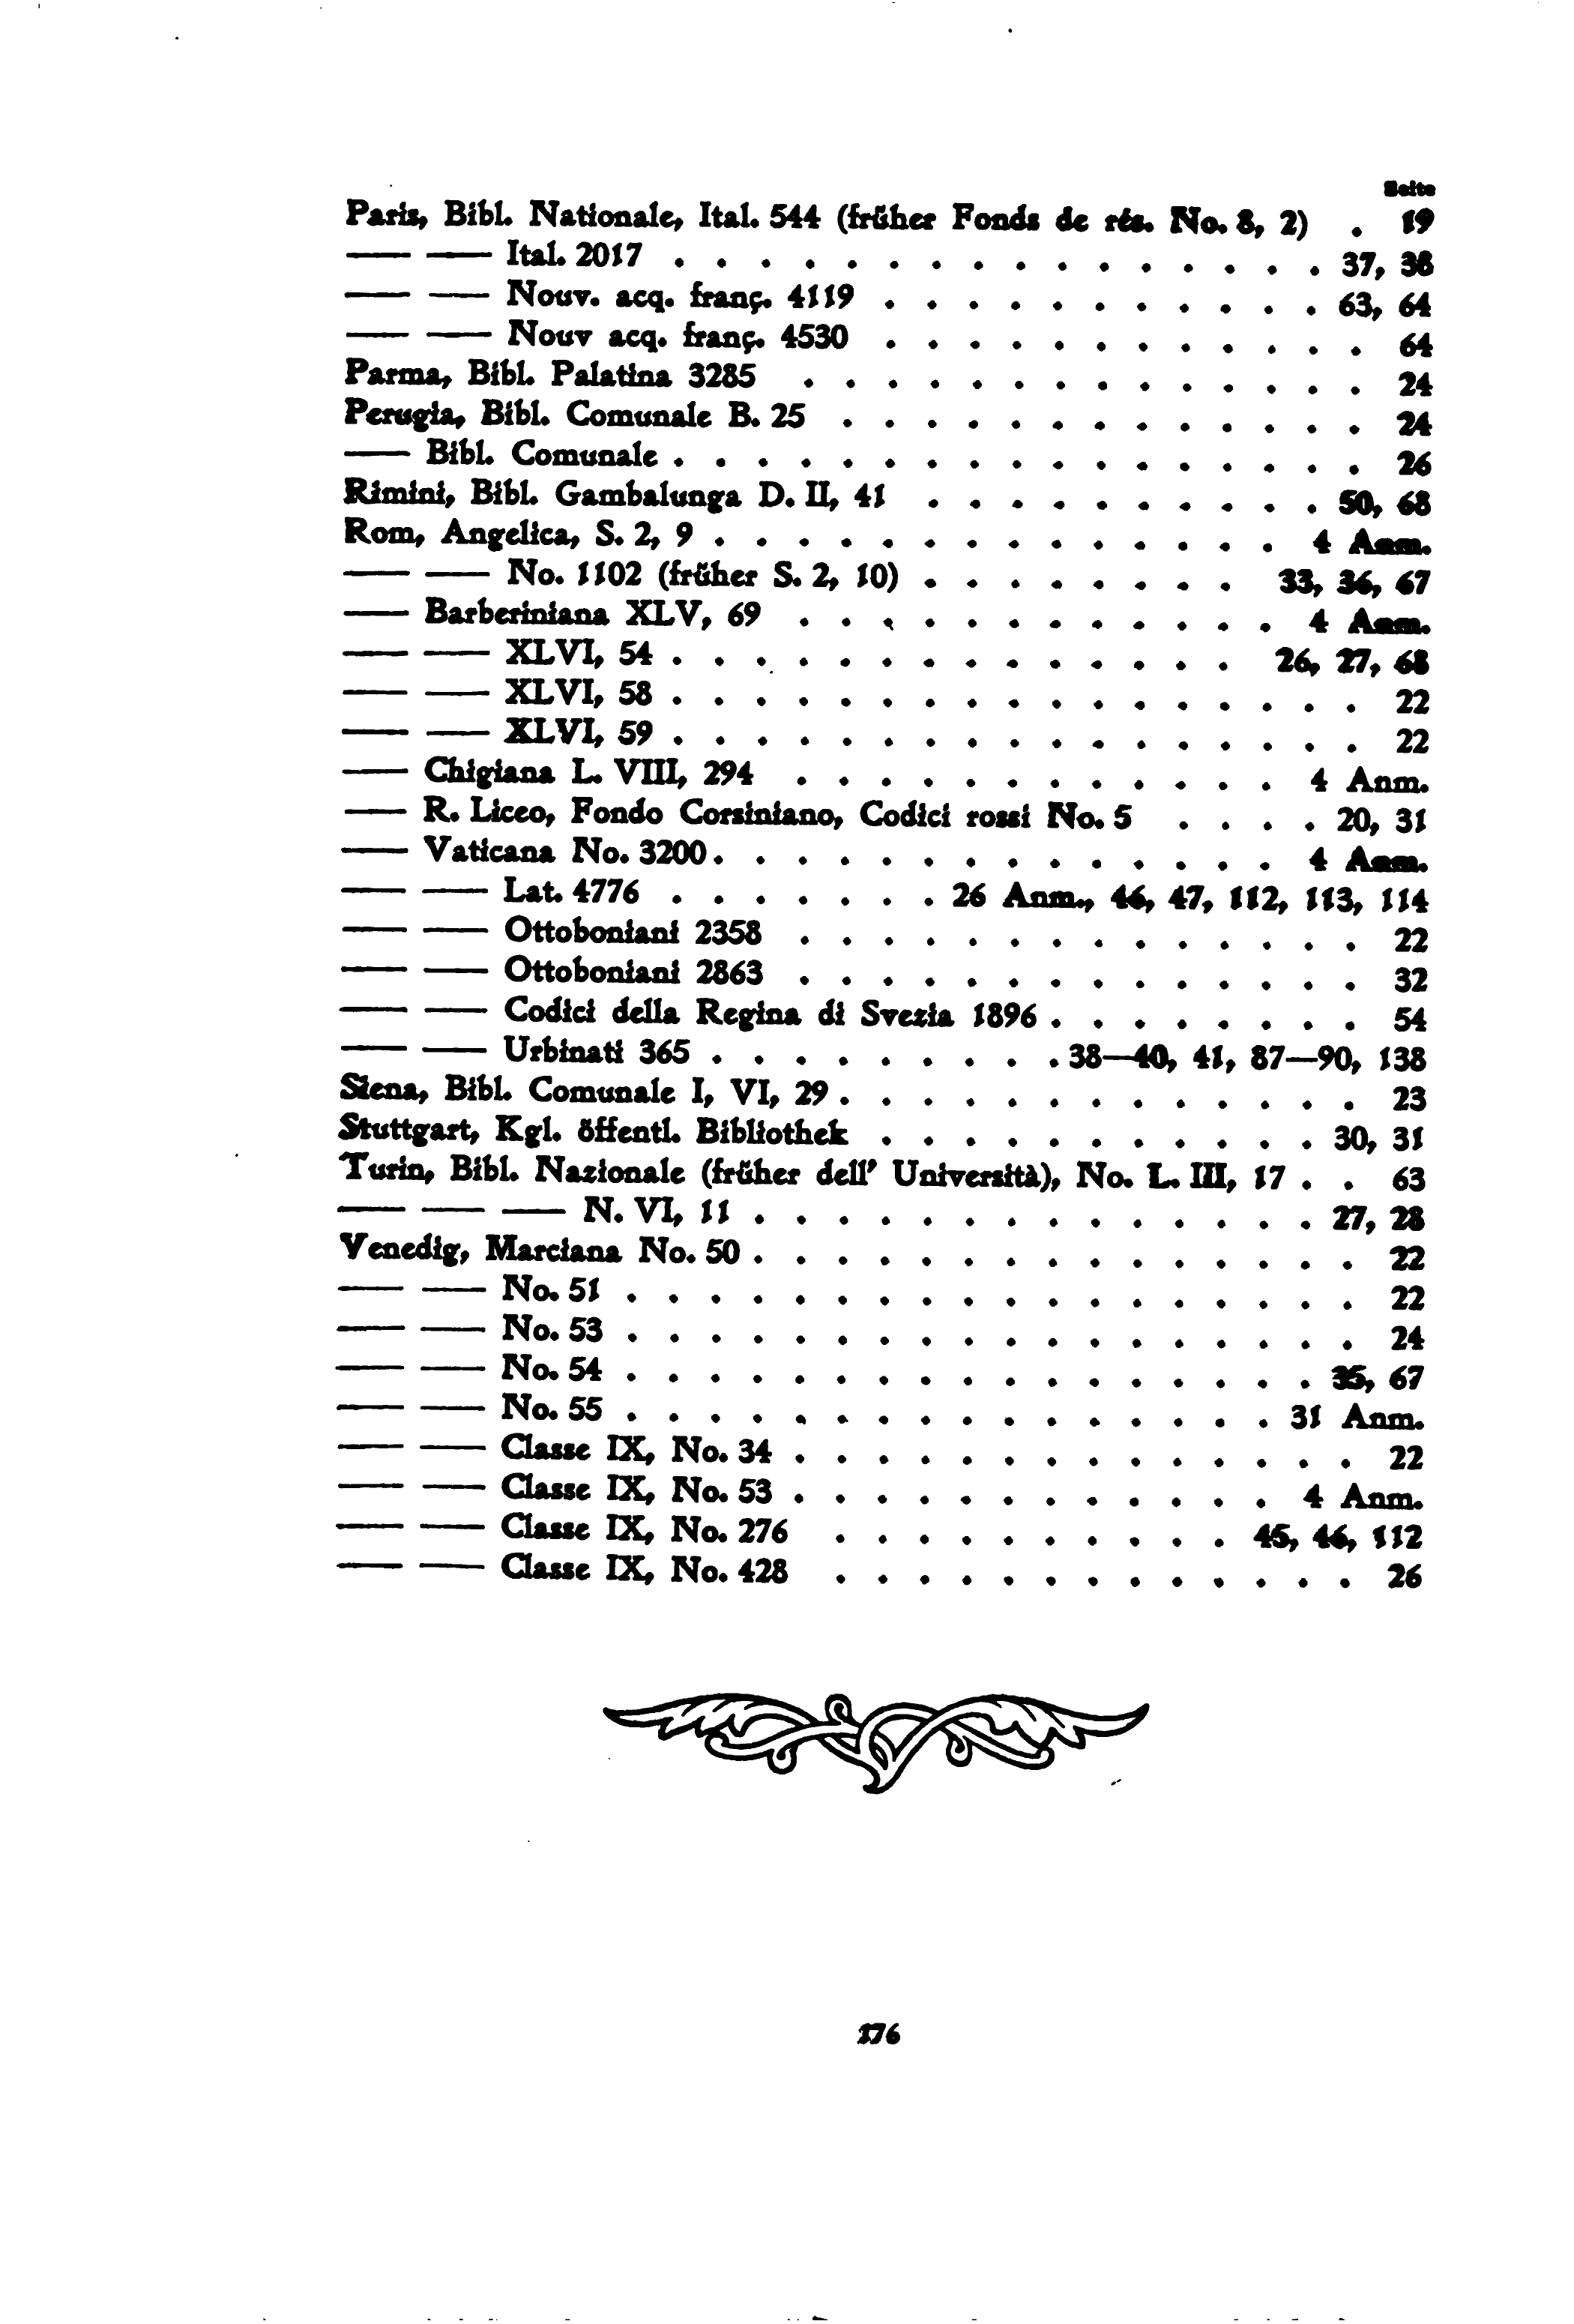 Seite
Paris, Bibl. Nationale, Ital. 544 (früher Fonds de rés. No. 8, 2) . 19
— — Ital. 2017 . . . . . . . . . . . . . . . . 37, 38
— — Nouv. acq. franç. 4119 . . . . . . . . . . . 63, 64
— — Nouv acq. franç. 4530 . . . . . . . . . . . . 64
Parma, Bibl. Palatina 3285 . . . . . . . . . . . . . . 24
Perugia, Bibl. Comunale B. 25 . . . . . . . . . . . . . 24
— Bibl. Comunale . . . . . . . . . . . . . . . . . 26
Rimini, Bibl. Gambalunga D. II, 41 . . . . . . . . . . 50, 68
Rom, Angelica, S. 2, 9 . . . . . . . . . . . . . . 4 Anm.
— — No. 1102 (früher S. 2, 10) . . . . . . . . 33, 36, 67
— Barberiniana XLV, 69 . . . . . . . . . . . . 4 Anm.
— — XLVI, 54 . . . . . . . . . . . . . . 26, 27, 68
— — XLVI, 58 . . . . . . . . . . . . . . . . . 22
— — XLVI, 59 . . . . . . . . . . . . . . . . . 22
— Chigiana L. VIII, 294 . . . . . . . . . . . . 4 Anm.
— R. Liceo, Fondo Corsiniano, Codici rossi No. 5 . . . . 20, 31
— Vaticana No. 3200 . . . . . . . . . . . . . . 4 Anm.
— — Lat. 4776 . . . . . . . 26 Anm., 46, 47, 112, 113, 114
— — Ottoboniani 2358 . . . . . . . . . . . . . . 22
— — Ottoboniani 2863 . . . . . . . . . . . . . . 32
— — Codici della Regina di Svezia 1896 . . . . . . . . 54
— — Urbinati 365 . . . . . . . . . 38—40, 41, 87—90, 138
Siena, Bibl. Comunale I, VI, 29 . . . . . . . . . . . . . 23
Stuttgart, Kgl. öffentl. Bibliothek . . . . . . . . . . . 30, 31
Turin, Bibl. Nazionale (früher dell' Università), No. L. III, 17 . . 63
— — — N. VI, 11 . . . . . . . . . . . . . . 27, 28
Venedig, Marciana No. 50 . . . . . . . . . . . . . . . 22
— — No. 51 . . . . . . . . . . . . . . . . . . 22
— — No. 53 . . . . . . . . . . . . . . . . . . 24
— — No. 54 . . . . . . . . . . . . . . . . . 35, 67
— — No. 55 . . . . . . . . . . . . . . . . 31 Anm.
— — Classe IX, No. 34 . . . . . . . . . . . . . . 22
— — Classe IX, No. 53 . . . . . . . . . . . . 4 Anm.
— — Classe IX, No. 276 . . . . . . . . . . 45, 46, 112
— — Classe IX, No. 428 . . . . . . . . . . . . . 26
176